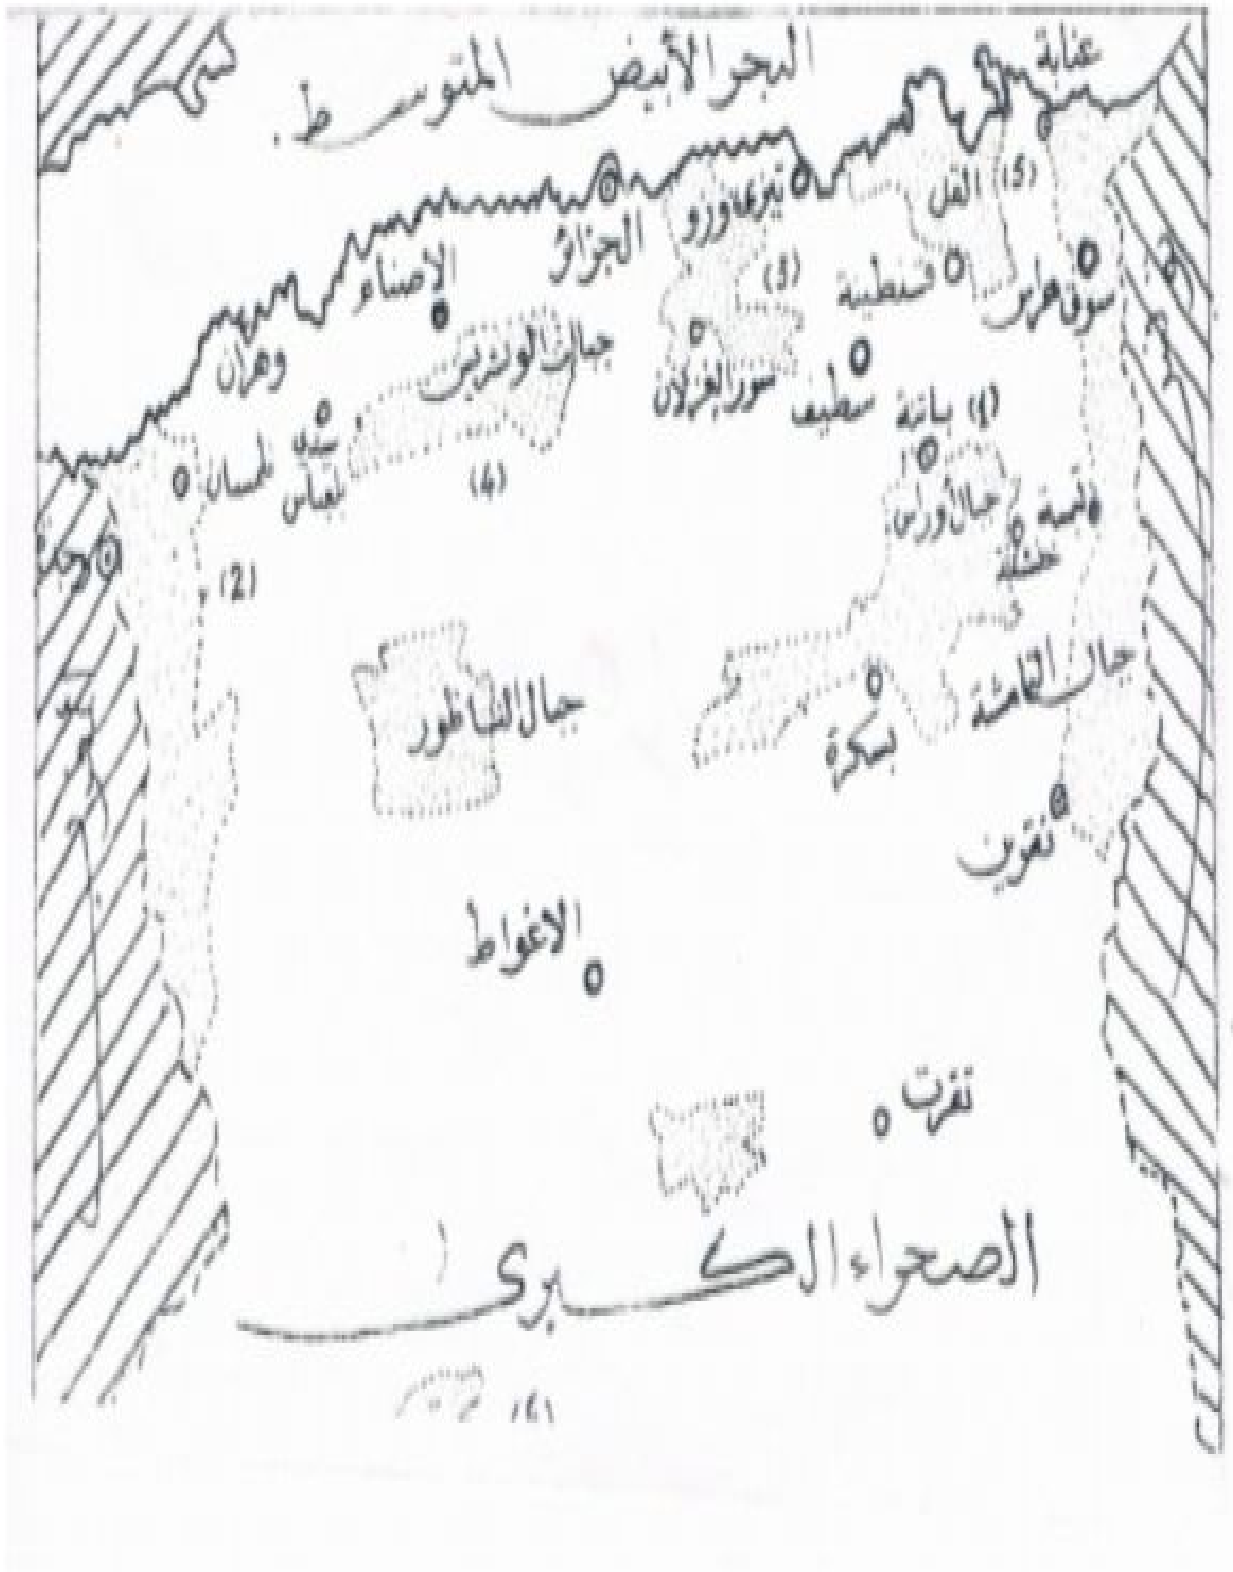 عنابة
البحر الأبيض المتوسط.
القل
(5)
تيزي وزو
الجزائر
(3)
قسنطينة
سوق هراس
الأصنام
جبال الونزريس
وهران
سور الغزلان
سطيف
باتنة (1)
سيدي
بلعباس
تلمسان
(4)
جبال أوراس
تبسة
خنشلة
وجدة
(2)
جبال النمامشة
جبال الناظور
بسكرة
نقرين
الاغواط
تقرت
الصحراء الكبرى